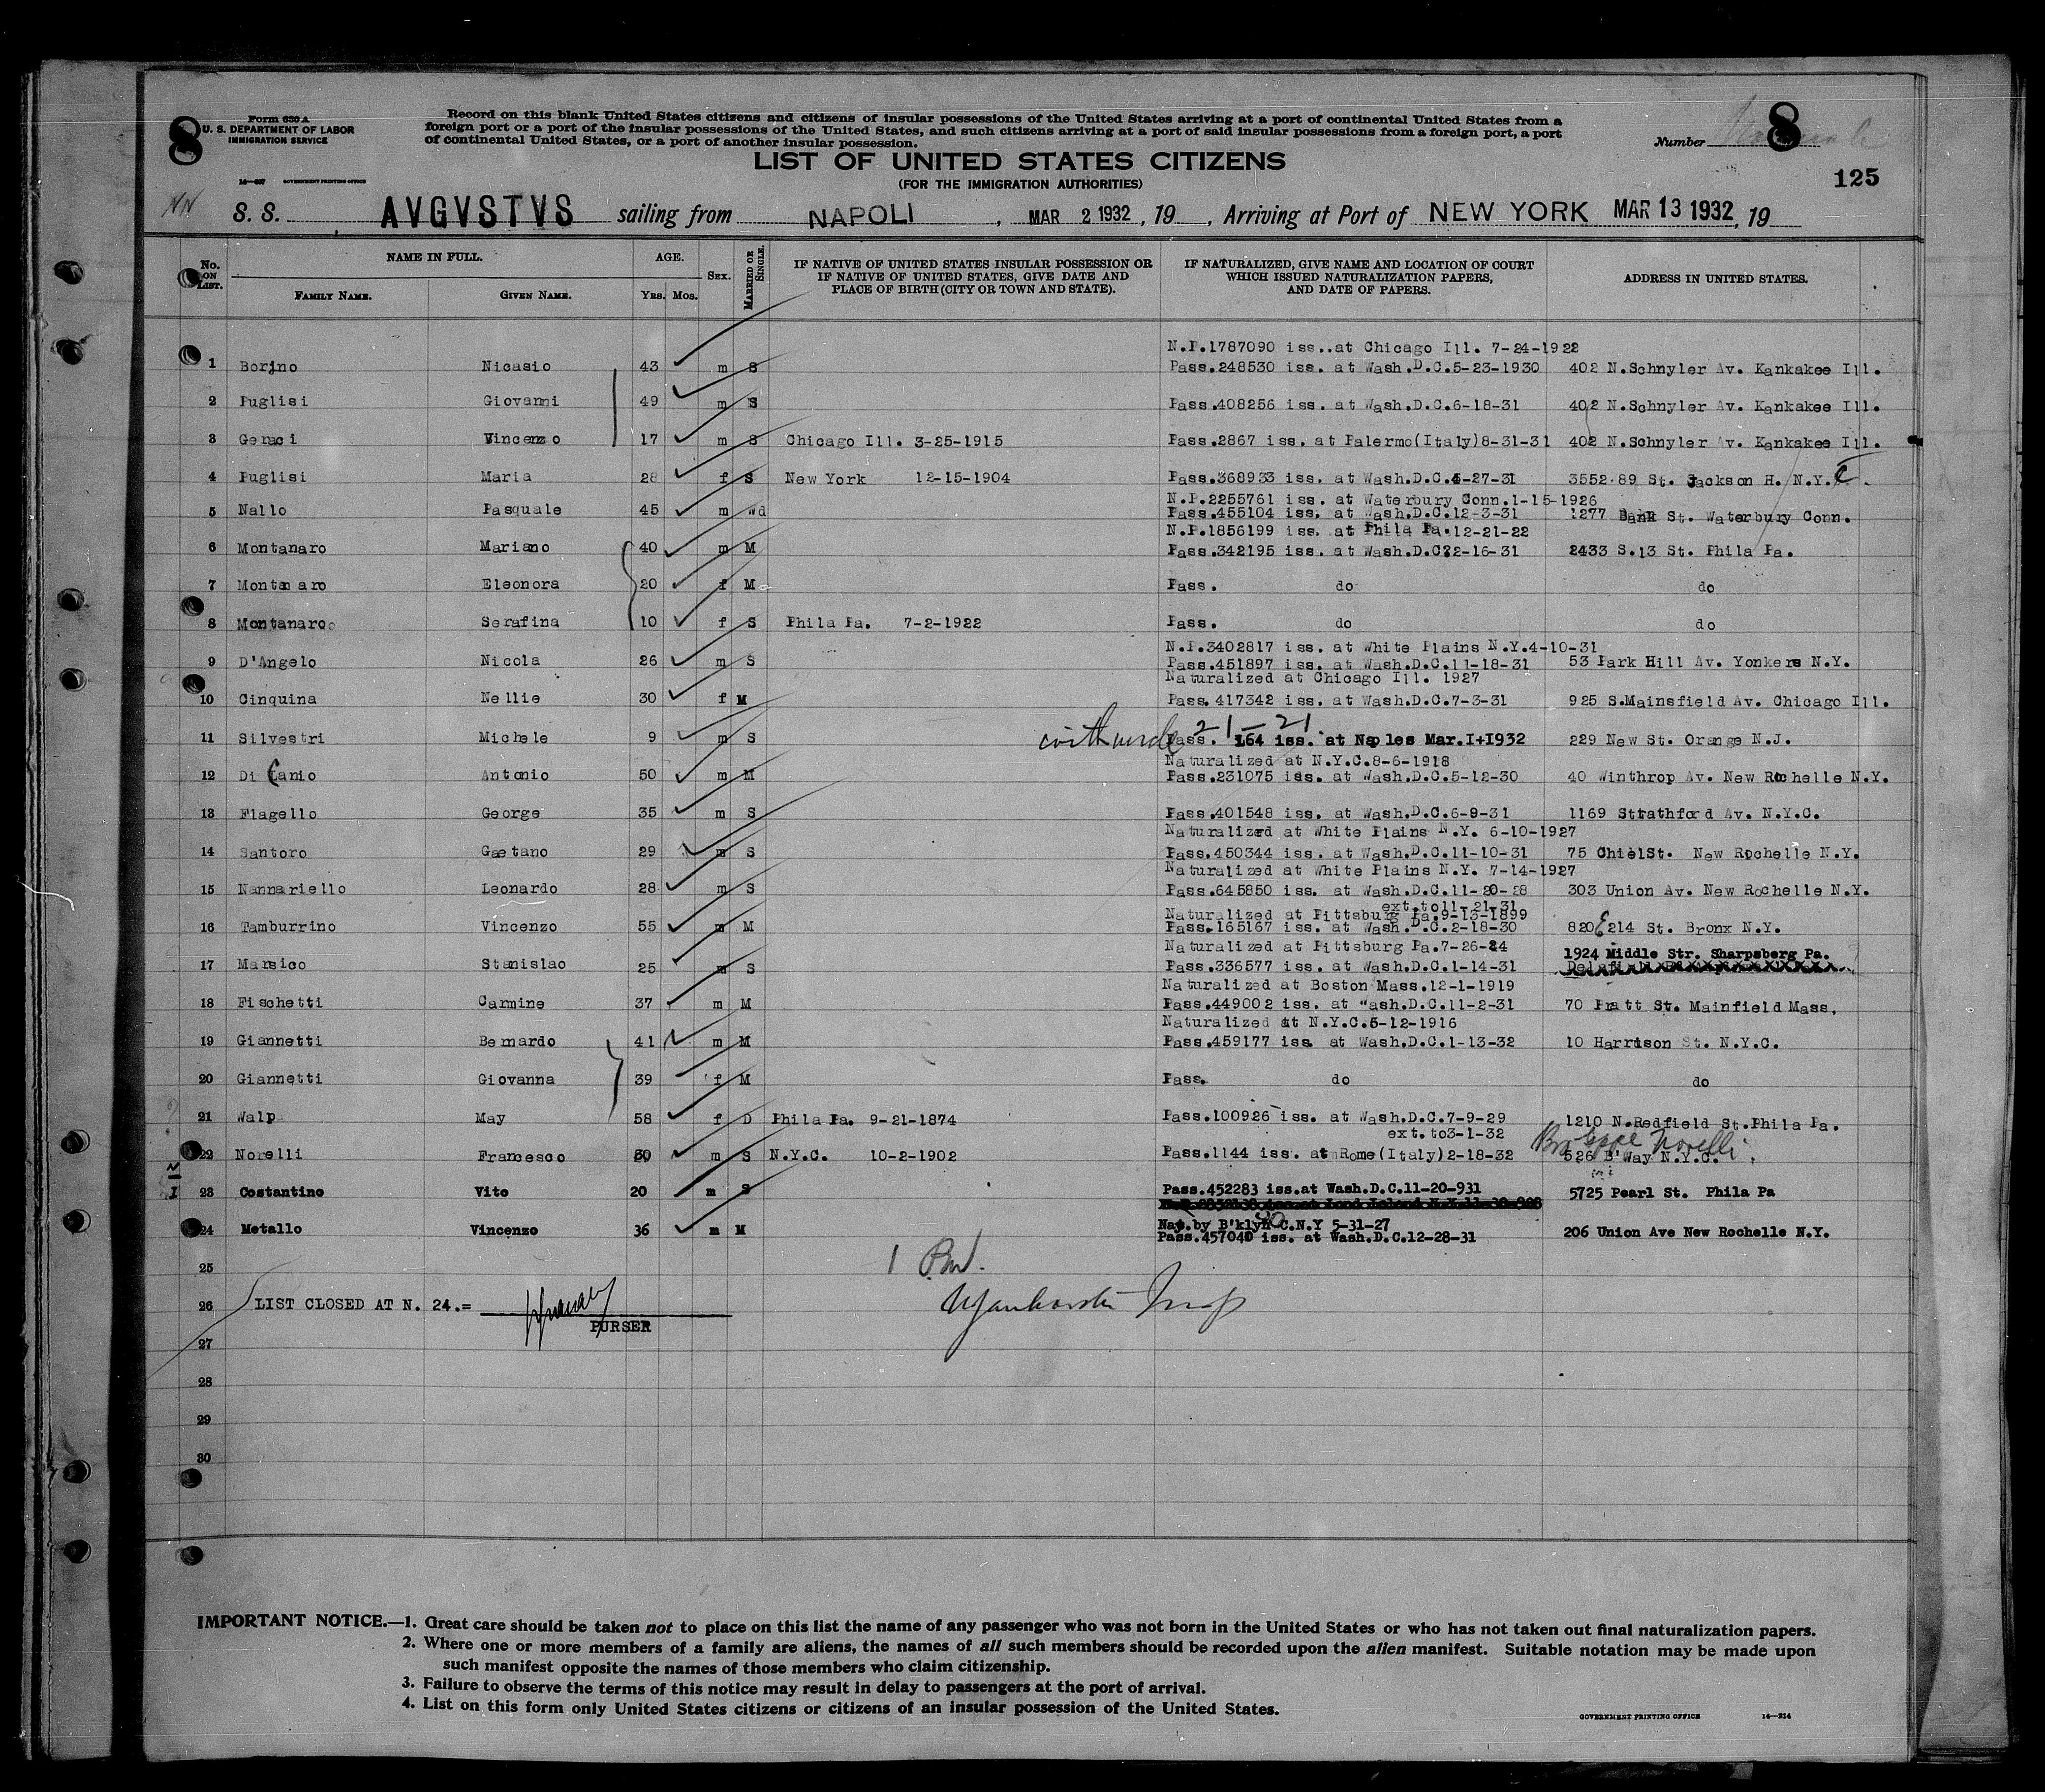 8
Form 630 A
U. S. DEPARTMENT OF LABOR
IMMIGRATION SERVICE
14—527 GOVERNMENT PRINTING OFFICE
Record on this blank United States citizens and citizens of insular possessions of the United States arriving at a port of continental United States from a
foreign port or a port of the insular possessions of the United States, and such citizens arriving at a port of said insular possessions from a foreign port, a port
of continental United States, or a port of another insular possession.
Number 8
LIST OF UNITED STATES CITIZENS
(FOR THE IMMIGRATION AUTHORITIES)
125
NN S. S. AVGVSTVS sailing from NAPOLI, MAR 2 1932, 19 , Arriving at Port of NEW YORK MAR 13 1932, 19
No. ON LIST. NAME IN FULL. FAMILY NAME. GIVEN NAME. AGE. YRS. MOS. SEX. MARRIED OR SINGLE. IF NATIVE OF UNITED STATES INSULAR POSSESSION OR IF NATIVE OF UNITED STATES, GIVE DATE AND PLACE OF BIRTH (CITY OR TOWN AND STATE). IF NATURALIZED, GIVE NAME AND LOCATION OF COURT WHICH ISSUED NATURALIZATION PAPERS, AND DATE OF PAPERS. ADDRESS IN UNITED STATES.
N.P.1787090 iss..at Chicago Ill. 7-24-1922
1 Borino Nicasio 43 m S Pass.248530 iss. at Wash.D.C.5-23-1930 402 N.Schnyler Av. Kankakee Ill.
2 Puglisi Giovanni 49 m S Pass.408256 iss. at Wash.D.C.6-18-31 402 N.Schnyler Av. Kankakee Ill.
3 Geraci Vincenzo 17 m S Chicago Ill. 3-25-1915 Pass.2867 iss. at Palermo(Italy)8-31-31 402 N.Schnyler Av. Kankakee Ill.
4 Puglisi Maria 28 f S New York 12-15-1904 Pass.368933 iss. at Wash.D.C.4-27-31 3552.89 St. Jackson H. N.Y.C.
N.P.2255761 iss. at Waterbury Conn.1-15-1926
5 Nallo Pasquale 45 m Wd Pass.455104 iss. at Wash.D.C.12-3-31 1277 Bank St. Waterbury Conn.
N.P.1856199 iss. at Phila Pa.12-21-22
6 Montanaro Mariano 40 m M Pass.342195 iss. at Wash.D.C.2-16-31 2433 S.13 St. Phila Pa.
7 Montanaro Eleonora 20 f M Pass. do do
8 Montanaro Serafina 10 f S Phila Pa. 7-2-1922 Pass. do do
N.P.3402817 iss. at White Plains N.Y.4-10-31
9 D'Angelo Nicola 26 m S Pass.451897 iss. at Wash.D.C.11-18-31 53 Park Hill Av. Yonkers N.Y.
Naturalized at Chicago Ill. 1927
10 Cinquina Nellie 30 f M Pass.417342 iss. at Wash.D.C.7-3-31 925 S.Mainsfield Av. Chicago Ill.
21-21
11 Silvestri Michele 9 m S Pass. 164 iss. at Naples Mar.I+I932 229 New St. Orange N.J.
Naturalized at N.Y.C.8-6-1918
12 Di Canio Antonio 50 m M Pass.231075 iss. at Wash.D.C.5-12-30 40 Winthrop Av. New Rochelle N.Y.
13 Flagello George 35 m S Pass.401548 iss. at Wash.D.C.6-9-31 1169 Strathford Av. N.Y.C.
Naturalized at White Plains N.Y. 6-10-1927
14 Santoro Gaetano 29 m S Pass.450344 iss. at Wash.D.C.11-10-31 75 ChielSt. New Rochelle N.Y.
Naturalized at White Plains N.Y. 7-14-1927
15 Nannariello Leonardo 28 m S Pass.645850 iss. at Wash.D.C.11-20-28 303 Union Av. New Rochelle N.Y.
ext.to11-21-31
Naturalized at Pittsburg Pa.9-13-1899
16 Tamburrino Vincenzo 55 m M Pass.165167 iss. at Wash.D.C.2-18-30 820 E 214 St. Bronx N.Y.
Naturalized at Pittsburg Pa.7-26-24 1924 Middle Str. Sharpsberg Pa.
17 Marsico Stanislao 25 m S Pass.336577 iss. at Wash.D.C.1-14-31
Naturalized at Boston Mass.12-1-1919
18 Fischetti Carmine 37 m M Pass.449002 iss. at "ash.D.C.11-2-31 70 Pratt St. Mainfield Mass.
Naturalized at N.Y.C.5-12-1916
19 Giannetti Bernardo 41 m M Pass.459177 iss at Wash.D.C.1-13-32 10 Harrison St. N.Y.C.
20 Giannetti Giovanna 39 f M Pass. do do
21 Walp May 58 f D Phila Pa. 9-21-1874 Pass.100926 iss. at Wash.D.C.7-9-29 1210 N.Redfield St.Phila Pa.
ext.to3-1-32 Norelli
22 Norelli Francesco 30 m S N.Y.C. 10-2-1902 Pass.1144 iss. at Rome(Italy)2-18-32 526 B'Way N.Y.C.
23 Costantino Vito 20 m S Pass.452283 iss.at Wash.D.C.11-20-931 5725 Pearl St. Phila Pa
Nat.by B'klyn C.N.Y 5-31-27
24 Metallo Vincenzo 36 m M Pass.457040 iss. at Wash.D.C.12-28-31 206 Union Ave New Rochelle N.Y.
25
26 LIST CLOSED AT N. 24.=
PURSER
27
28
29
30
IMPORTANT NOTICE.—1. Great care should be taken not to place on this list the name of any passenger who was not born in the United States or who has not taken out final naturalization papers.
2. Where one or more members of a family are aliens, the names of all such members should be recorded upon the alien manifest. Suitable notation may be made upon
such manifest opposite the names of those members who claim citizenship.
3. Failure to observe the terms of this notice may result in delay to passengers at the port of arrival.
4. List on this form only United States citizens or citizens of an insular possession of the United States.
GOVERNMENT PRINTING OFFICE 14—214